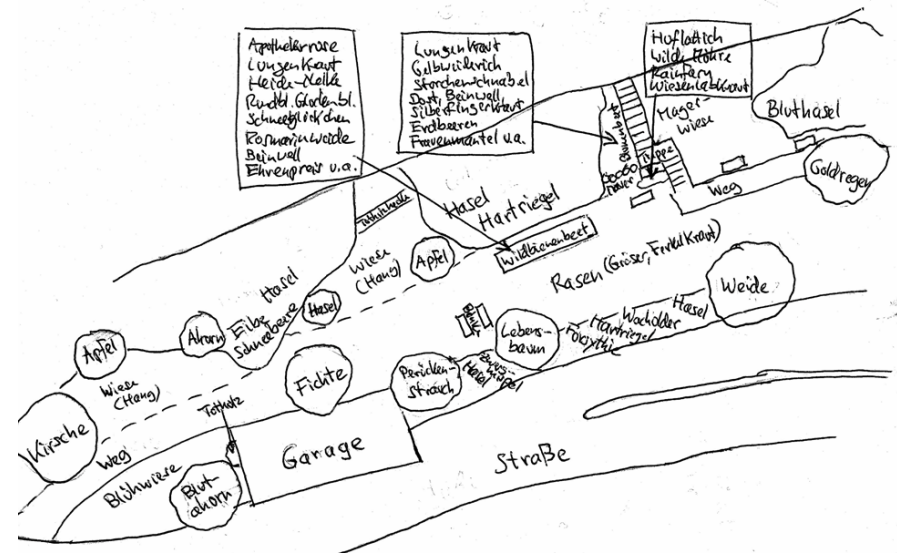 Apothekerrose
Lungenkraut
Heide-Nelke
Rundbl. Glockenbl.
Schneeglöckchen
Rosmarinweide
Beinwell
Ehrenpreis u.a.
Lungenkraut
Gelbweiderich
Storchenschnabel
Dost, Beinwell,
Silberfingerkraut
Erdbeeren
Frauenmantel u.a.
Huflattich
Wilde Möhre
Rainfarn
Wiesenlabkraut
Mager-
wiese
Bluthasel
Treppe
Goldregen
Weg
Totholzhecke
Hasel
Hartriegel
Wildbienenbeet
Wiese
(Hang)
Apfel
Rasen (Gräser, Ferkelkraut)
Weide
Hasel
Eibe
Schneebeere
Hasel
Ahorn
Apfel
Lebens-
baum
Hasel
Wacholder
Hartriegel
Forsythie
Fichte
Perücken-
strauch
Zwerg-
mispel
Hasel
Wiese
(Hang)
Kirsche
Totholz
Weg
Blühwiese
Blut-
ahorn
Garage
Straße